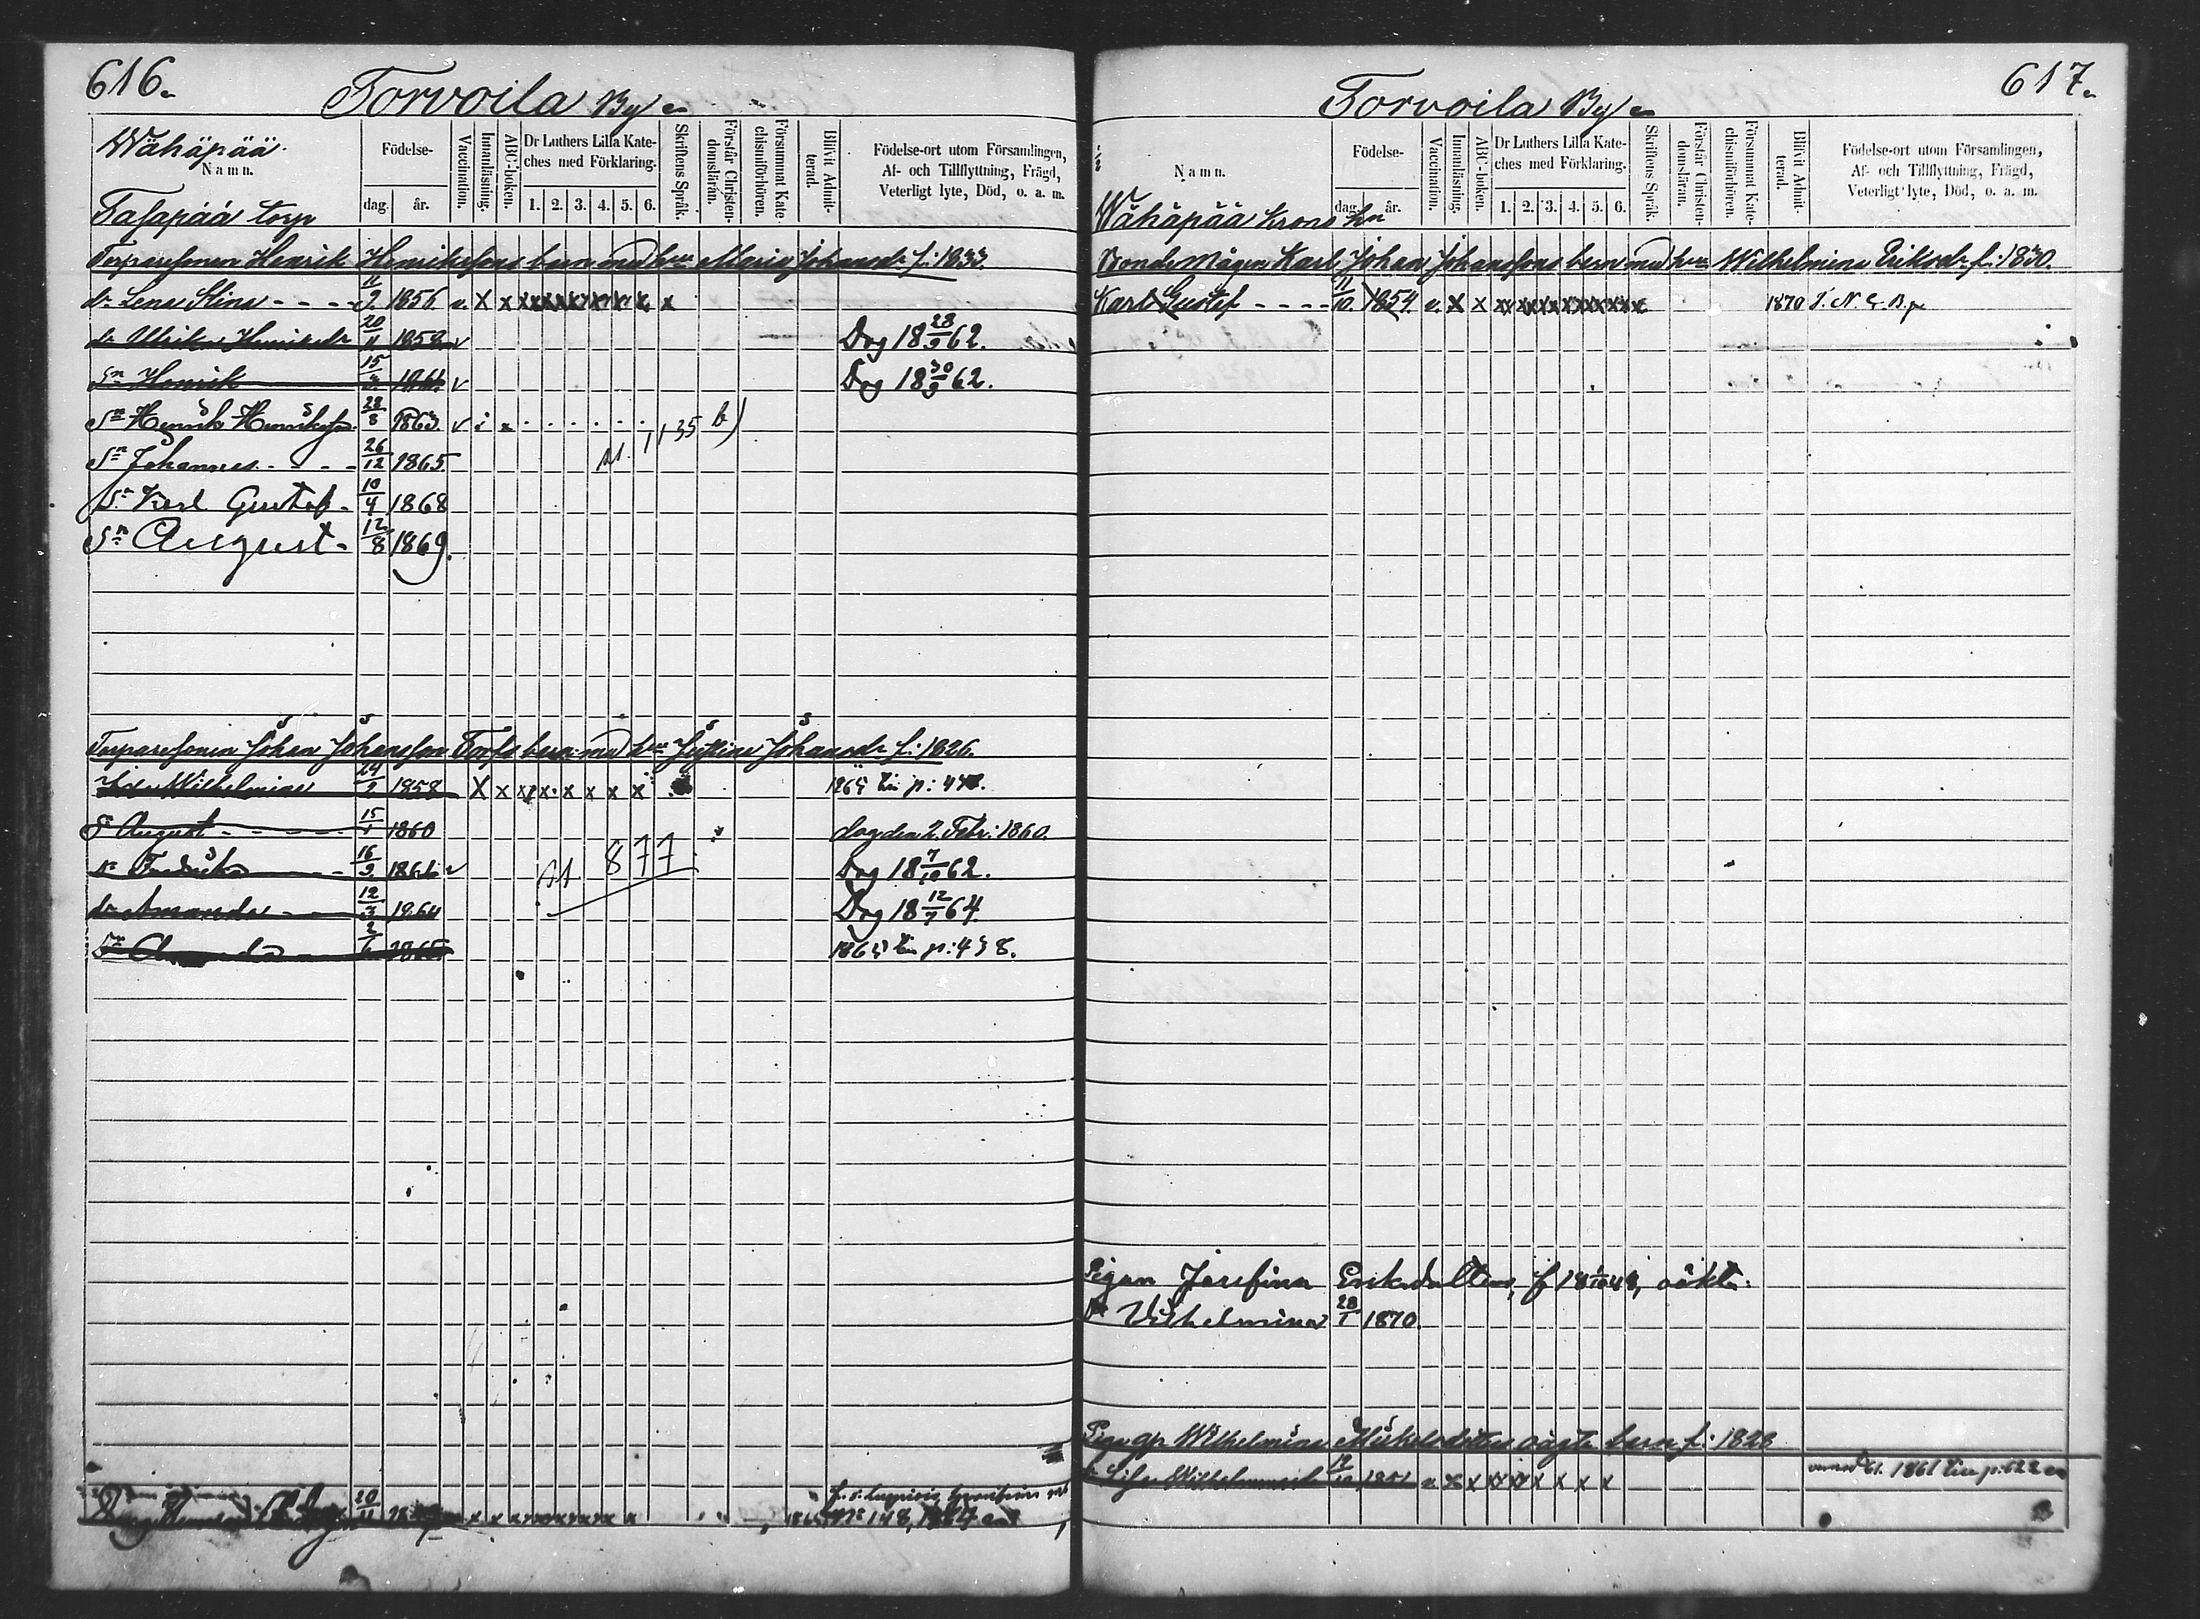 616.
Torvoila By
Wähäpää
Namn.
Födelse-
dag. år.
Vaccination.
Innanläsning.
ABC-boken.
Dr Luthers Lilla Kate-
ches med Förklaring.
1. 2. 3. 4. 5. 6.
Skriftens Språk.
Förstår Christen-
domsläran.
Försummat Kate-
chismiförhören.
Blifvit Admit-
terad.
Födelse-ort utom Församlingen,
Af- och Tillflyttning, Frägd,
Veterligt lyte, Död, o. a. m.
Tasapää torp
Torparesonen Henrik Henrikssons barn med hu Maria Johansdr f: 1833.
dr Lena Stina 11/2 1856 v. X x x x x x x x x
dr Ulrika Henriksdr 20/11 1858 v Dog 18 28/9 62.
Sn Henrik 15/3 1861 v Dog 18 30/9 62.
Sn Henrik Henriksson 28/8 1863 v i
Sn Johannes 26/12 1865 1135 b)
Sn Karl Gustaf 10/4 1868
Sn August 12/8 1869.
Torparesonen Johan Johansson Torfs barn med hu Justina Johansdr f: 1826.
Wilhelmina 24/2 1858 X x x x x x x x 1865
S. August 15/1 1860 dog den 2. Febr: 1860.
Fredrik 16/9 1861 v 877 Dog 18 7/10 62.
dr Amanda 12/3 1864 Dog 18 12/7 64
2/6 1865 1865 p: 438.
20/11
148,
617.
Torvoila By
Namn.
Födelse-
dag. år.
Vaccination.
Innanläsning.
ABC-boken.
Dr Luthers Lilla Kate-
ches med Förklaring.
1. 2. 3. 4. 5. 6.
Skriftens Språk.
Förstår Christen-
domsläran.
Försummat Kate-
chismiförhören.
Blifvit Admit-
terad.
Födelse-ort utom Församlingen,
Af- och Tillflyttning, Frägd,
Veterligt lyte, Död, o. a. m.
Wähäpää krono hn
Bonde Mågen Karl Johan Johanssons barn med hu Wilhelmina Eriksdr f: 1830.
Karl Gustaf 11/10. 1854. v. x x x x x x x x x 1870 S. N. G. B.
Pigan Josefina Eriksdotters, f 18 1/10 48, oäkta
Dr Vilhelmina 28/1 1870.
Pigan Wilhelmina Mickelsdotters oägta barn f: 1828
Wilhelmina 12/10 1851 v x x x x x x x x 1861 p: 622